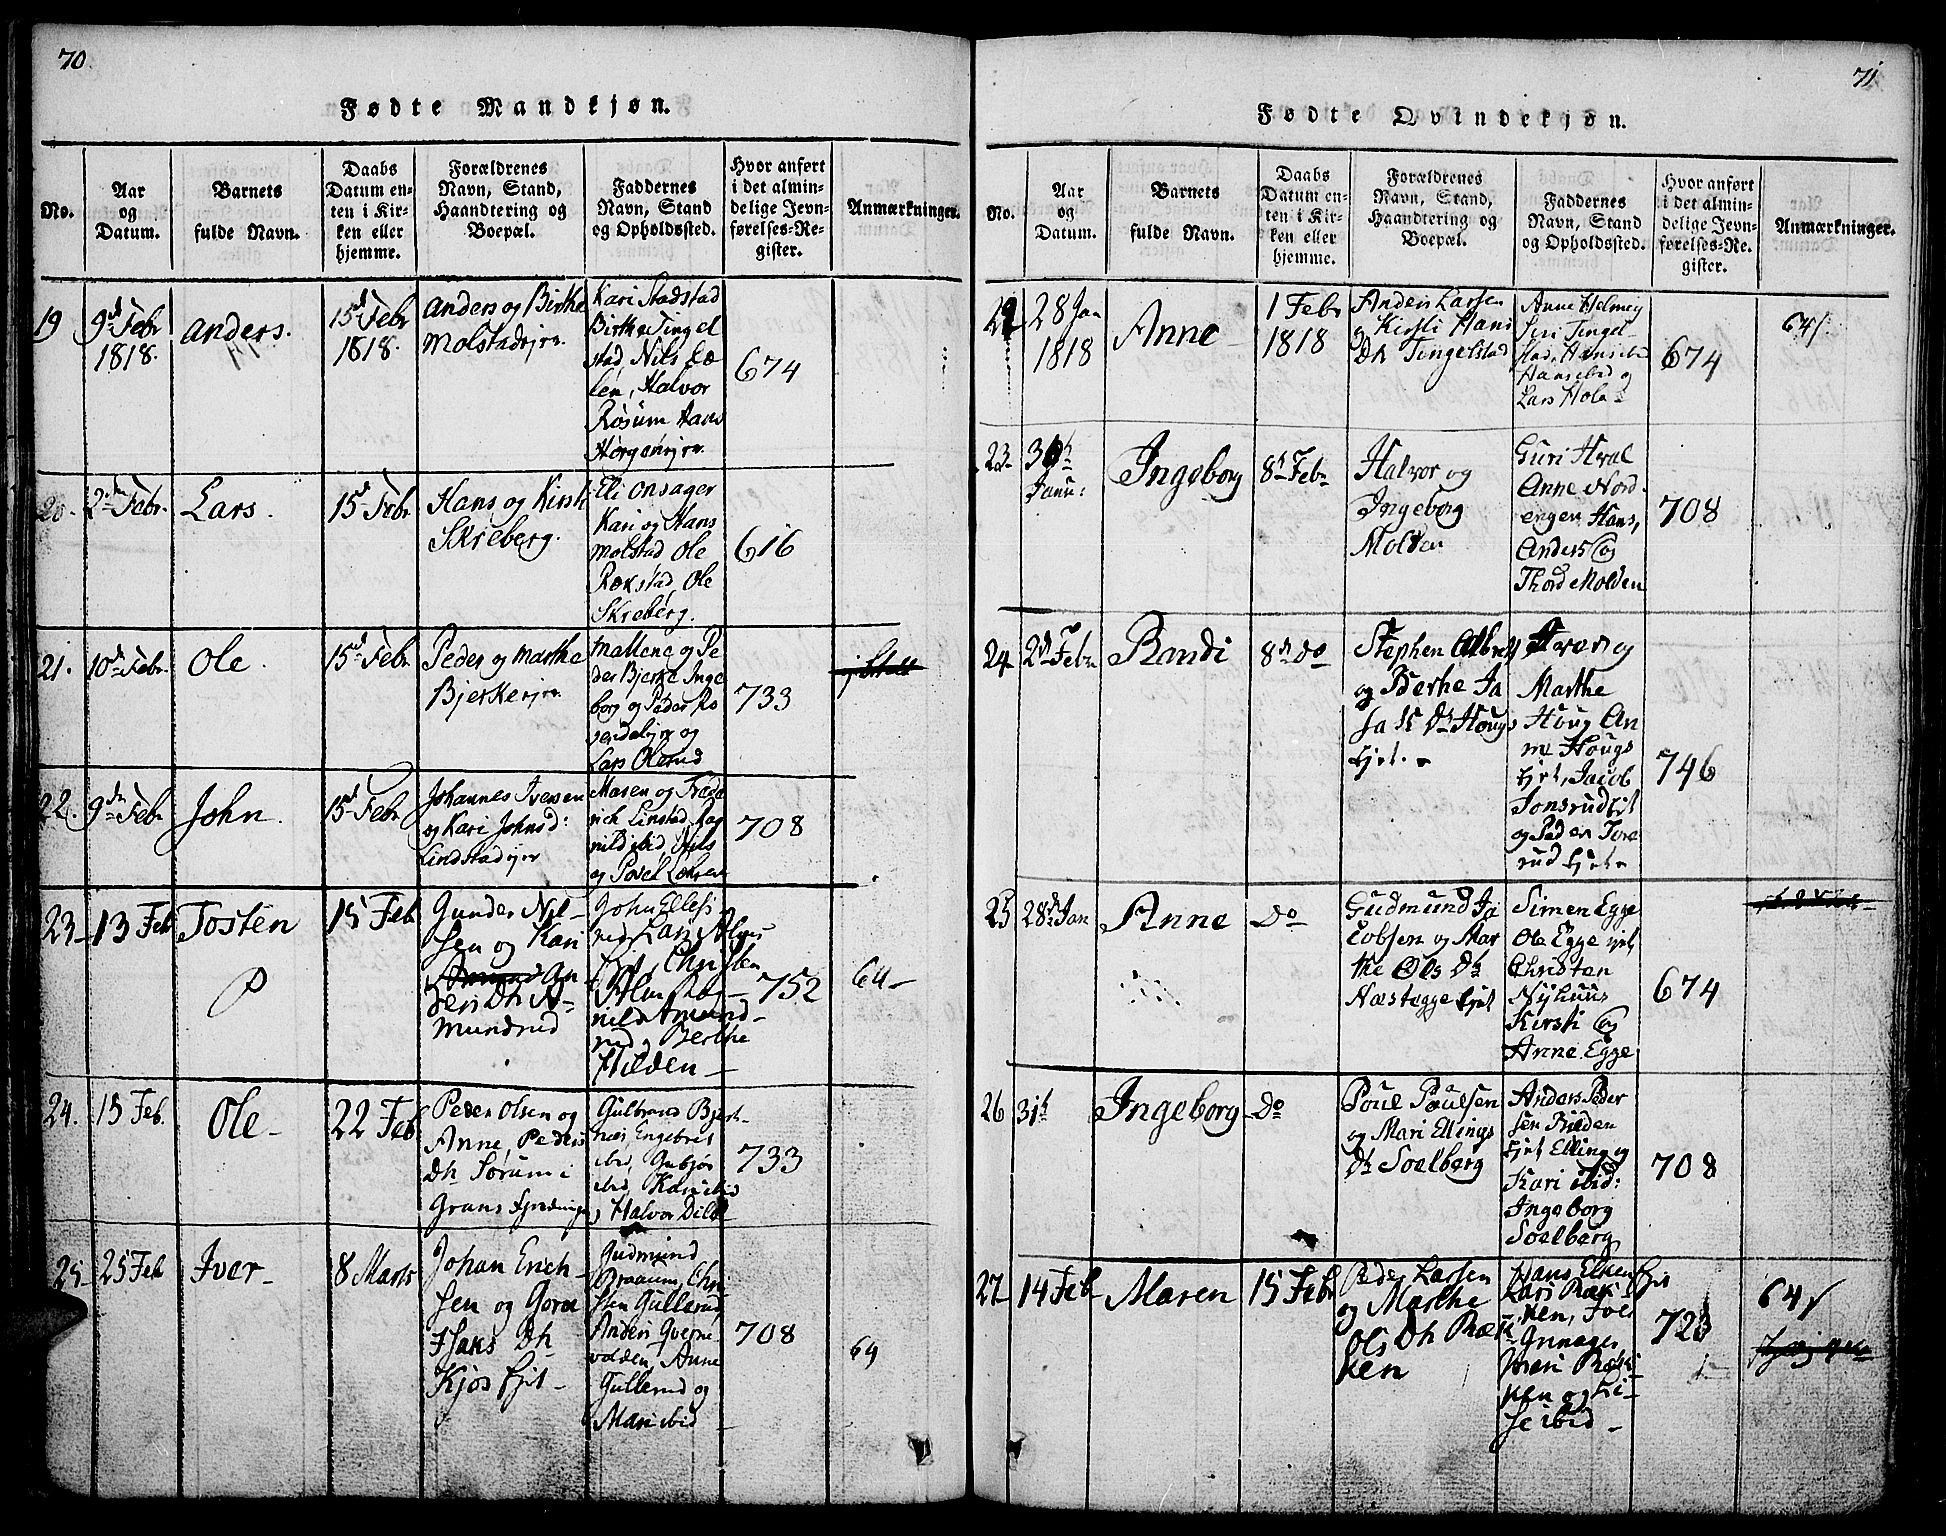 70.
Fødte Mandkjøn.
No.
Aar
og
Datum.
Barnets
fulde Navn.
Daabs
Datum en-
ten i Kir-
ken eller
hjemme.
Forældrenes
Navn, Stand,
Haandtering og
Boepæl.
Faddernes
Navn, Stand
og Opholdssted.
Hvor anført
i det almin-
delige Jevn-
førelses-Re-
gister.
Anmærkninger.
19
9de Febr
1818.
Anders.
15de Febr
1818.
Anders og Birthe
Molstadejre
Kari Stadstad
Birthe Tingel
stad, Nils
Halvor
Røsum Hans
674
20.
2den Febr.
Lars.
15de Febr
Hans og Kirsti
Skreberg.
Eli Onsager
Kari og Hans
Molstad Ole
Rækstad Ole
Skreberg.
616
21.
10de Febr.
Ole.
15de Febr
Peder og Marthe
Bjerkeejre
Mallene og Pe
der Bjerke Inge
borg og Peder Ro
og
Lars Olerud
733
22.
9de Febr
John.
15de Febr
Johannes Iversen
og Kari Johnsd:
Lindstadejer
Maren og Frede
rich Linstad, Rag
nild ibid, Nils
og Povel
708
23
13 Feb
Tosten
15 Feb
Gunder Nil-
sen og Kari
An
ders Dh A-
mundrud
John
Lars Alm
Christen
Alm Rag-
nild Amund-
rud, Berthe
Hilden
752
64
24.
15 Feb.
Ole
22 Feb
Peder Olsen og
Anne Peders
Dh Sørum i
Grans fjerdinge
Gulbrand Bjert-
næs Engebret
ibid, Gubjør
ibid, Kari ibid
Halvor
733
25
25 Feb
Iver
8 Marts
Johan Erich-
sen og Goro
Hans Dh
Kjos Ejet
Gudmund
Braaum, Chri
sten Gullerud
Anders Qverne
volden, Anne
Gullerud og
Mari ibid
708
64
71
Fødte Qvindekjøn.
No.
Aar
og
Datum.
Barnets
fulde Navn.
Daabs
Datum en-
ten i Kir-
ken eller
hjemme.
Forældrenes
Navn, Stand,
Haandtering og
Boepæl.
Faddernes
Navn, Stand
og Opholdssted.
Hvor anført
i det almin-
delige Jevn-
førelses-Re-
gister.
Anmærkninger.
22
28 Jan
1818
Anne
1 Febr
1818
Anders Larsen
og Kirsti Hans
Dh Tingelstad
Anne Helmey
Siri Tingel
stad, Hans ibid
Hans ibid og
Lars Hole
674
64
23
Janu:
Ingeborg
8de Febr
Halvor og
Ingeborg
Molden
Guri Hval
Anne Nord
engen Hans,
Anders og
Thord Molden
708
24
2den Febr
Randi
8de Do
Stephen
og Berthe Ja
Dh Hougs
Ejet.
Marthe
Houg An
ne Hougs
Ejet, Jacob
Jonsrudejet
og Peder Tore
rud Ejet
746
25
28de Jan
Anne
Do
Gudmund Ja
cobsen og Mar
the Ols Dh
Næstegge Ejet
Simen Egge
Ole Egge ejet
Christen
Nyhuus
Kirsti og
Anne Egge
674
26
31te
Ingeborg
Do
Poul Poulsen
og Mari Ellings
Dh Soelberg
Anders Peder
sen Rilden
Ejet Elling og
Kari ibid:
Ingeborg
Soelberg
708
27
14 Feb
Maren
15 Feb
Peder Larsen
og Marthe
Ols Dh Ræk
ken
Hans
Lars Ræk
ken, Iver
Mari Ræk
ken og Li-
se ibid
723
64